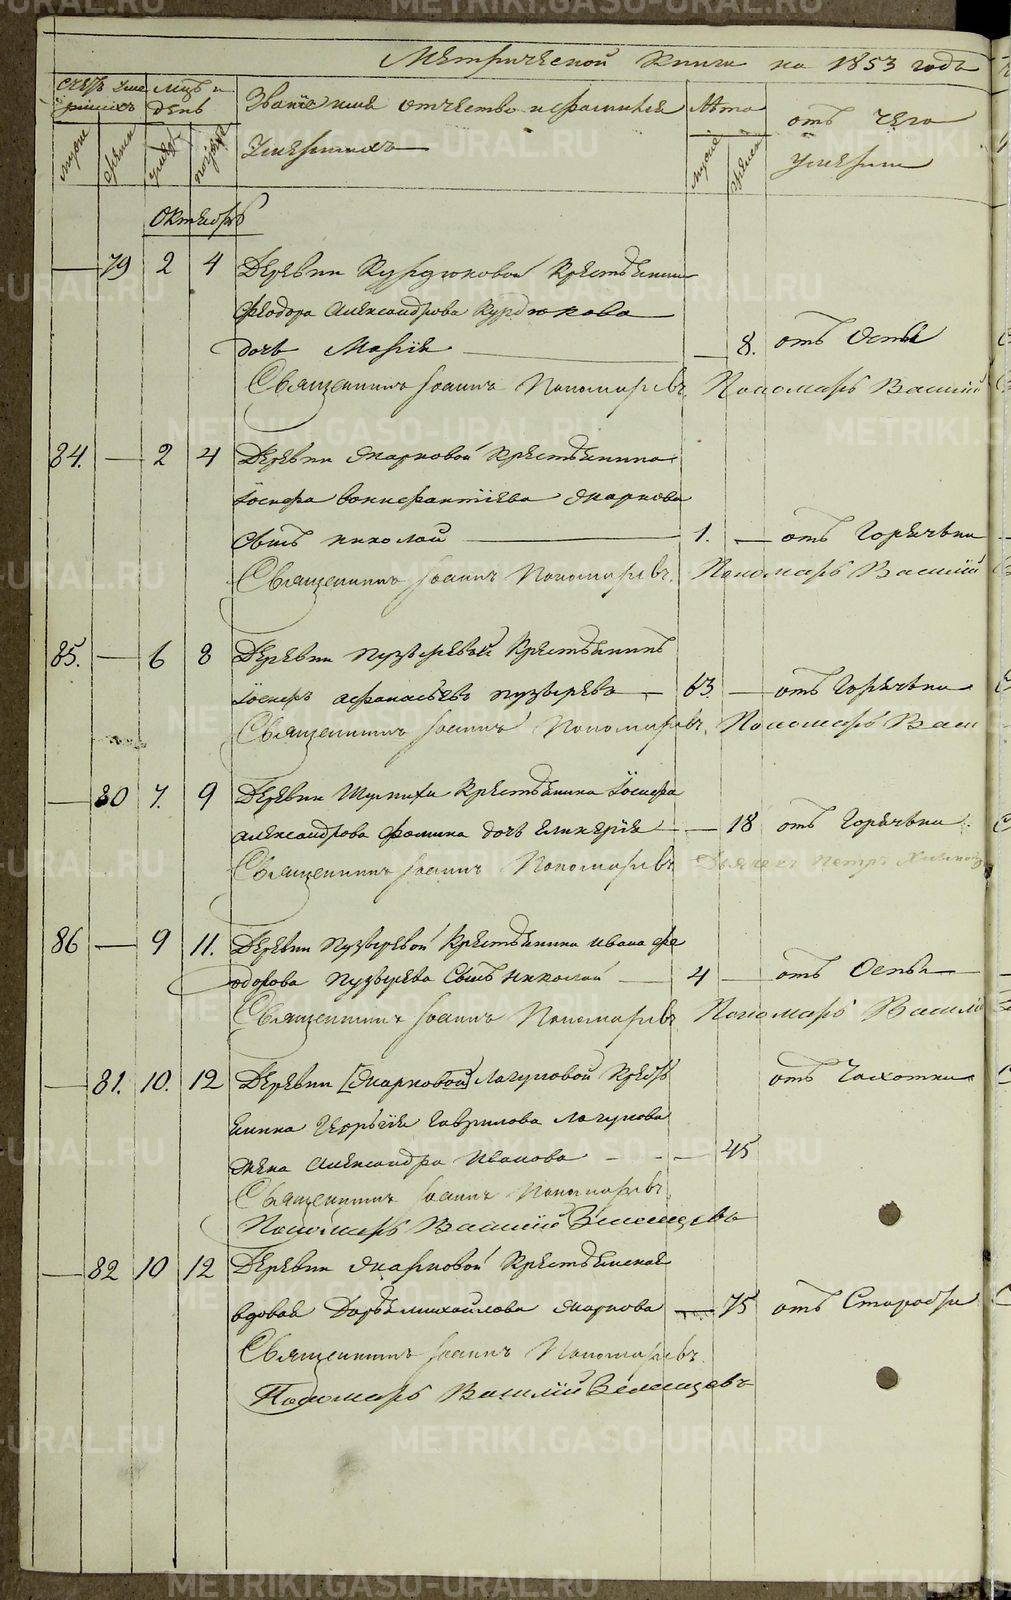 Метрической Книги на 1853 годъ
Счетъ Уме
ршихъ
Мцъ и
день
Званіе имя отчество и фамилія
Умершихъ
Лѣта
отъ чего
умерли
мужес
женск
умер
погреб
мужес
женск
Октябрь
79 2 4 Деревни Курдюковой Крестьянина
Феодора Александрова Курдюкова
дочь Марія 8. отъ Оспы
Священникъ Іоаннъ Пономаревъ. Пономарь Василій
84. 2 4 Деревни Марковой Крестьянина
Іосифа Вонифантіева Маркова
сынъ Николай 1. отъ Горячьки
Священникъ Іоаннъ Пономаревъ. Пономарь Василій
85. 6 8 Деревни Пузыревой Крестьянинъ
Іосифъ Афанасьевъ Пузыревъ 63 отъ Горячьки
Священникъ Іоаннъ Пономаревъ. Пономарь Васи
80 7. 9 Деревни Шупихи Крестьянина Іосифа
Александрова Фомина дочь Гликерія 18 отъ Горячьки
Священникъ Іоаннъ Пономаревъ Дьячекъ Петръ
86 9 11. Деревни Пузыревой Крестьянина Ивана Фе
одорова Пузырева Сынъ Николай 4 отъ Оспы
Священникъ Іоаннъ Пономаревъ Пономарь Васили
81. 10. 12 Деревни [Марковой] Лагуновой Кресть отъ Чахотки
янина Георгія Гаврилова Лагунова
жена Александра Иванова 45
Священникъ Іоаннъ Пономаревъ.
Пономарь Василій
82 10 12 Деревни Марковой Крестьянская
вдова Дарья Михайлова Маркова 75 отъ Старости
Священникъ Іоаннъ Пономаревъ.
Пономарь Василій
METRIKI.GASO-URAL.RU